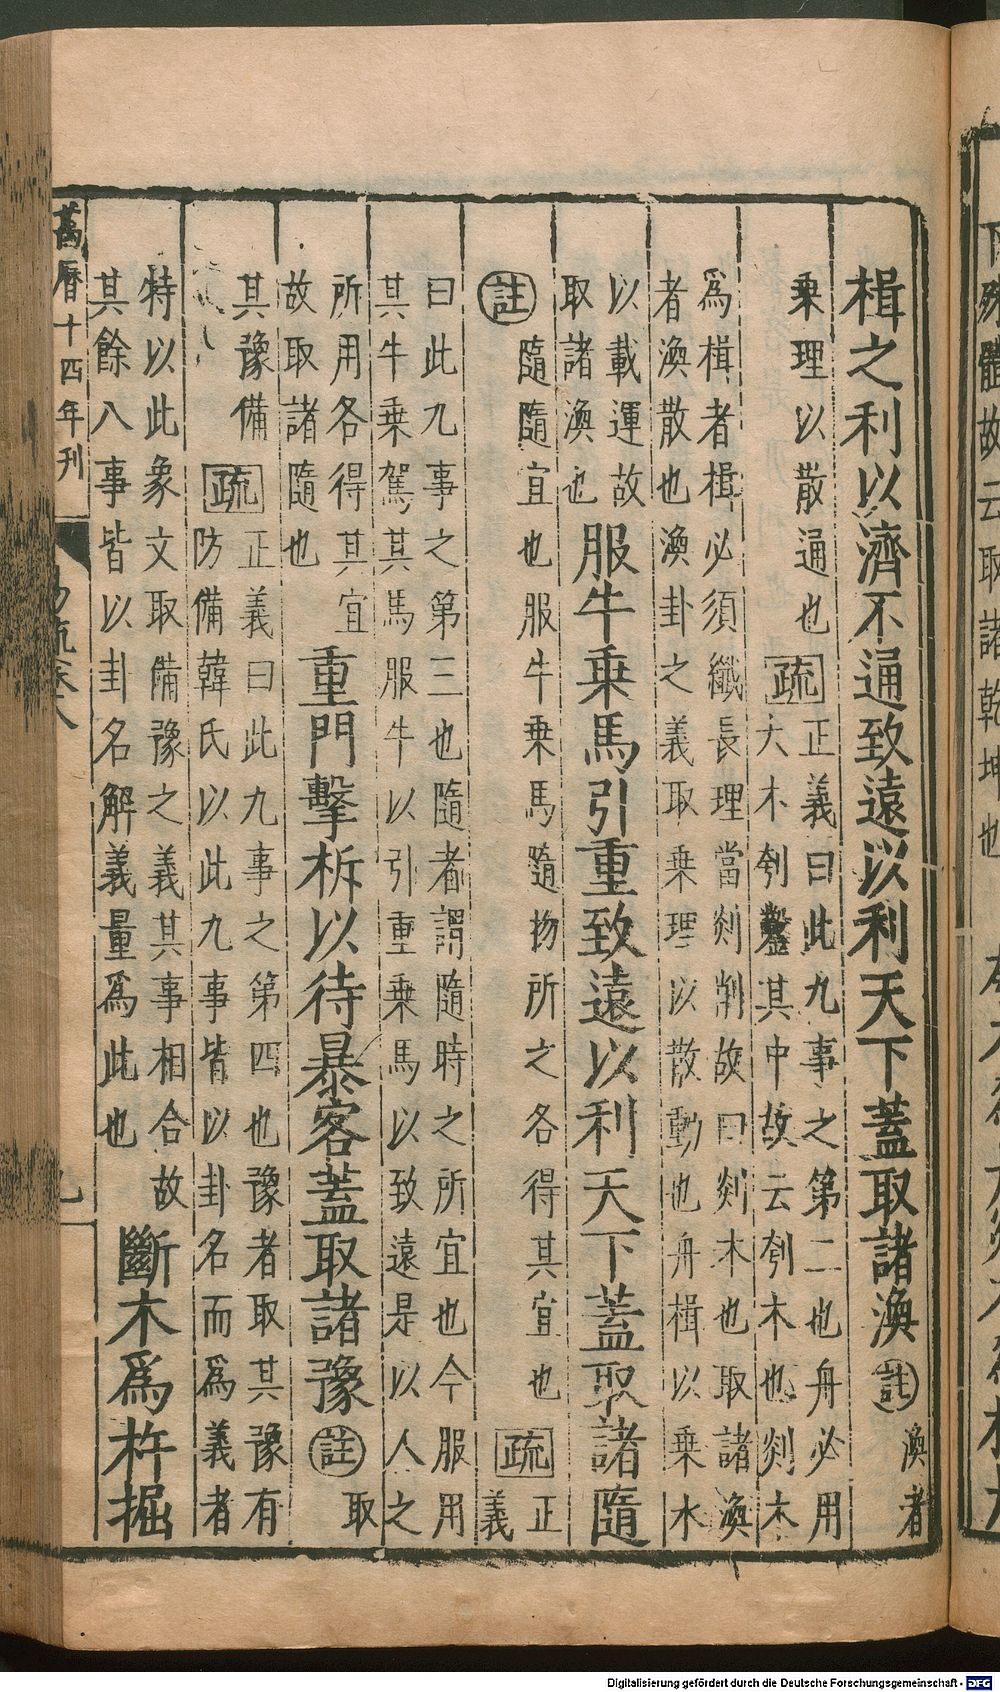 楫之利以濟不通致遠以利天下蓋取諸渙註渙者
乗理以散通也疏正義曰此九事之第二也舟必用
大木刳鑿其中故云刳木也剡木
爲楫者楫必須纖長理當剡削故曰剡木也取諸渙
者渙散也渙卦之義取乗理以散動也舟楫以乗水
以載運故
取諸渙也服牛乗馬引重致遠以利天下蓋取諸隨
註隨隨宜也服牛乗馬隨物所之各得其宜也疏正
義
曰此九事之第三也隨者謂隨時之所宜也今服用
其牛乗駕其馬服牛以引重乗馬以致遠是以人之
所用各得其宜
故取諸隨也重門擊柝以待暴客蓋取諸豫註取
其豫備疏正義曰此九事之第四也豫者取其豫有
防備韓氏以此九事皆以卦名而爲義者
特以此象文取備豫之義其事相合故
其餘八事皆以卦名解義量爲此也斷木爲杵掘
萬曆十四年刊
易疏卷八
九
Digitalisierung gefördert durch die Deutsche Forschungsgemeinschaft - DFG